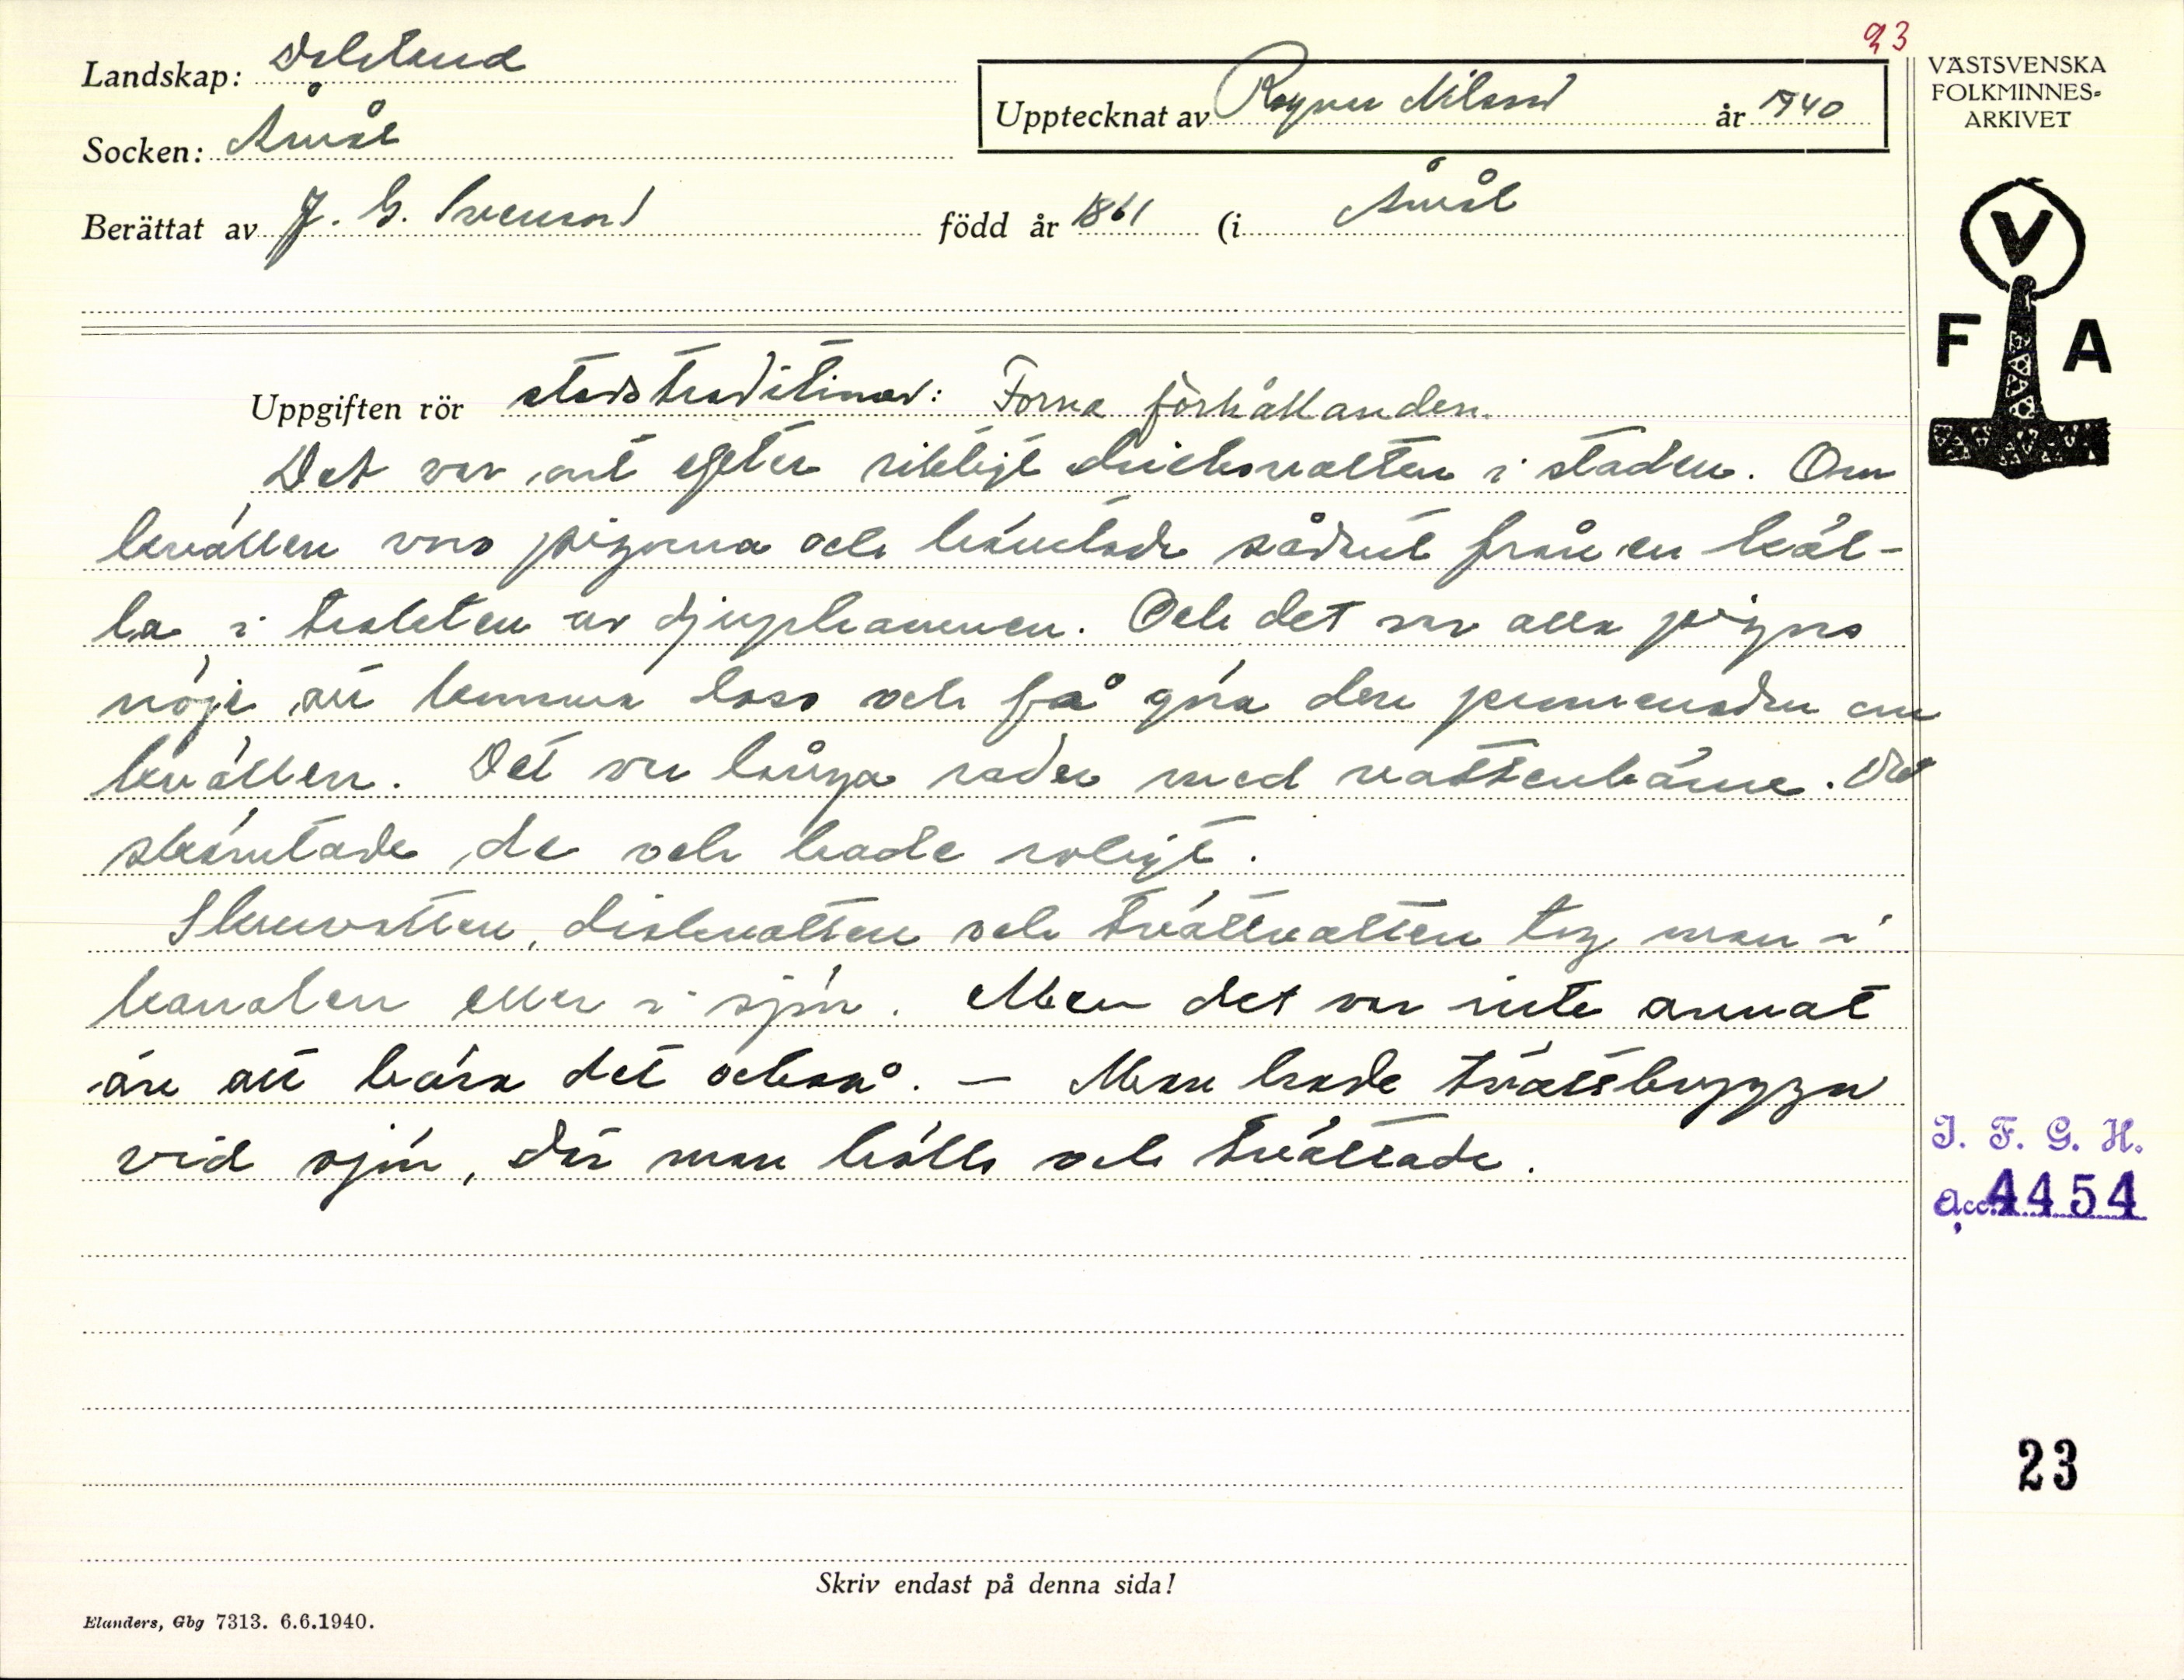 23
Landskap: Dalsland
Socken: Åmål
Upptecknat av Ragnar Nilsson år 1940
Berättat av J. G. Svenson född år 1861 (i Åmål
VÄSTSVENSKA
FOLKMINNES-
ARKIVET
V
F A
Uppgiften rör stadstraditioner: Forna förhållanden.
Det var ont efter riktigt dricksvatten i staden. Om
kvällen voro pigorna och hämtade sådant från en käl-
la i trakten av djuphamnen. Och det var alla pigors
nöje att komma loss och få göra den promenaden om
kvällen. Det var långa rader med vattenbärare. Det
skämtade de och hade roligt.
Skurvatten, diskvatten och tvättvatten tog man i
kanalen eller i sjön. Men det var inte annat
än att bära det också. — Man hade tvättbryggor
vid sjön, där man höll och tvättade.
I. F. G. H.
Acc. 4454
23
Skriv endast på denna sida!
Elanders, Gbg 7313. 6.6.1940.